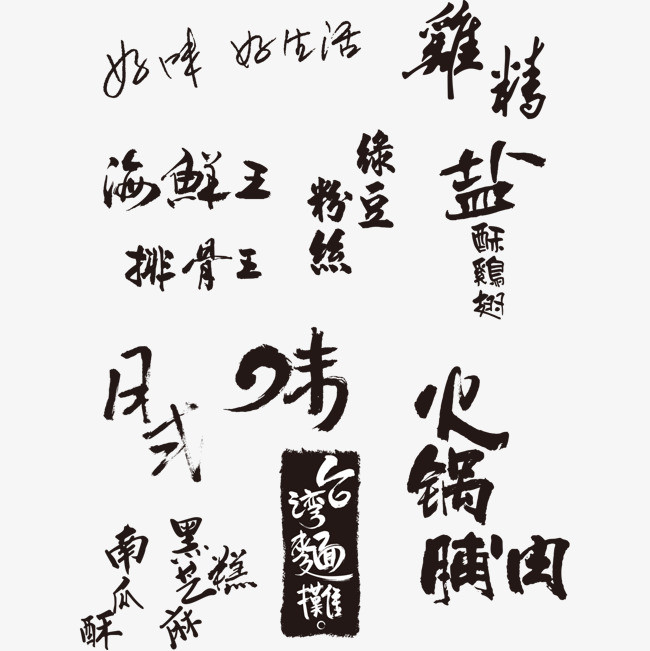 好味
好生活
雞精
海鮮王
綠豆
粉絲
盐
酥雞翅
排骨王
日式
味
火
锅
脯肉
台湾麵攤。
南瓜
酥
黑芝麻
糕